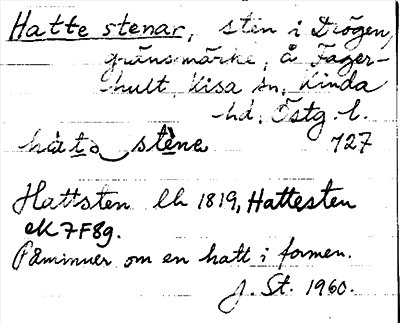 Hatte stenar, sten i Drögen,
gränsmärke, å Fager-
hult, Kisa sn, Kinda
hd, Östg. l.
hàt̲ɔ stène 727
Hattsten lh 1819, Hattesten
eK 7F8g.
Påminner om en hatt i formen.
J. St. 1960.